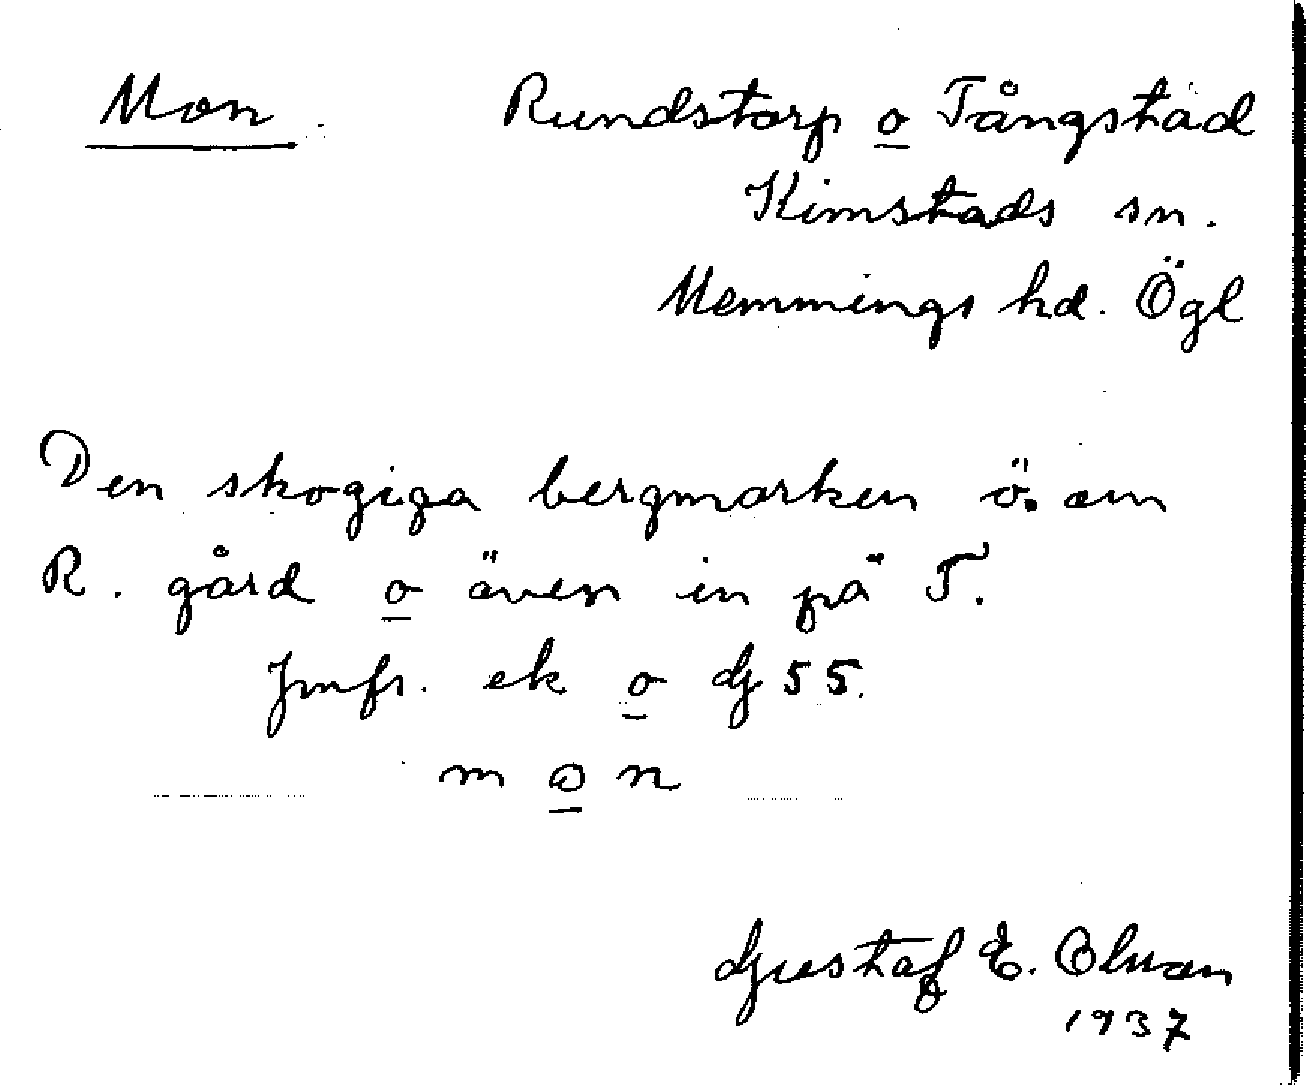 Mon. Rundstorp o Tångstad
Kimstads sn.
Memmings hd. Ögl
Den skogiga bergmarken ö. om
R. gård o även in på T.
Jmfr. ek o Gj 55.
m o n
Gustaf E. Olsson
1937